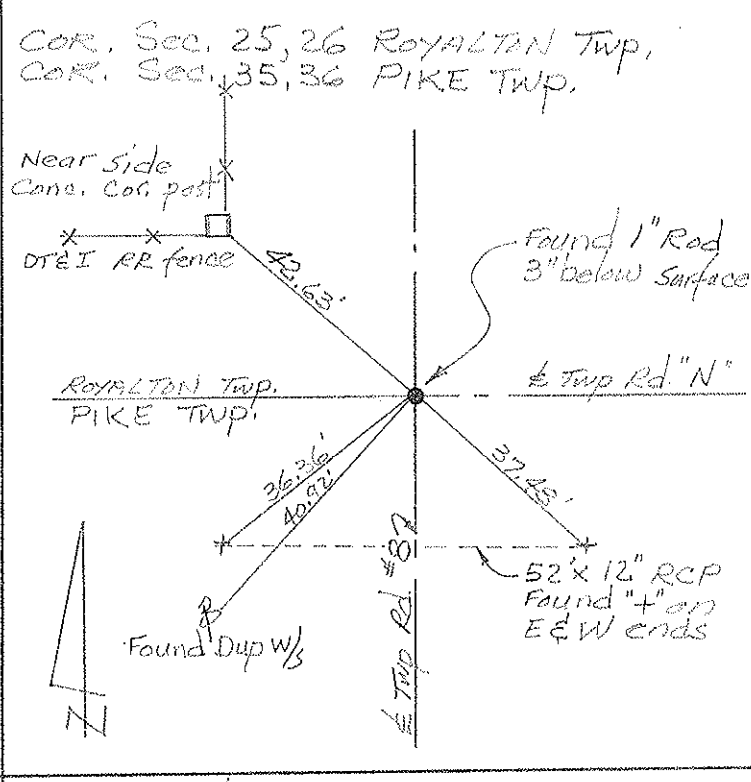 COR. Sec. 25,26 ROYALTON Twp.
COR. Sec. 35,36 PIKE TWP.
Near side
Conc. Cor. post
DT&I RR fence
42.63'
Found 1" Rod
3" below Surface
ROYALTON Twp.
PIKE TWP.
℄ Twp Rd. "N"
36.36'
40.92'
37.48'
℄ Twp Rd. #
52'x 12" RCP
Found "+" on
E & W ends
Found Dup W/s
N